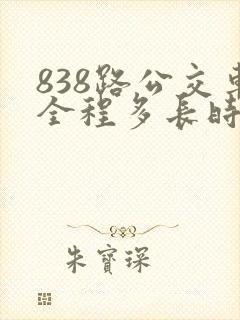 838路公交車
全程多長時
朱寶琛